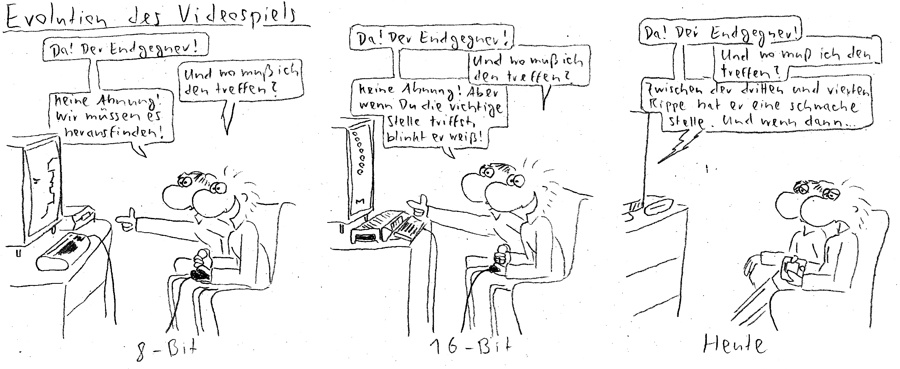 Evolution des Videospiels
Da! Der Endgegner!
Und wo muß ich
den treffen?
Keine Ahnung!
Wir müssen es
herausfinden!
8-Bit
Da! Der Endgegner!
Und wo muß ich
den treffen?
Keine Ahnung! Aber
wenn Du die richtige
Stelle triffst,
blinkt er weiß!
16-Bit
Da! Der Endgegner!
Und wo muß ich den
treffen?
Zwischen der dritten und vierten
Rippe hat er eine schwache
Stelle. Und wenn dann...
Heute